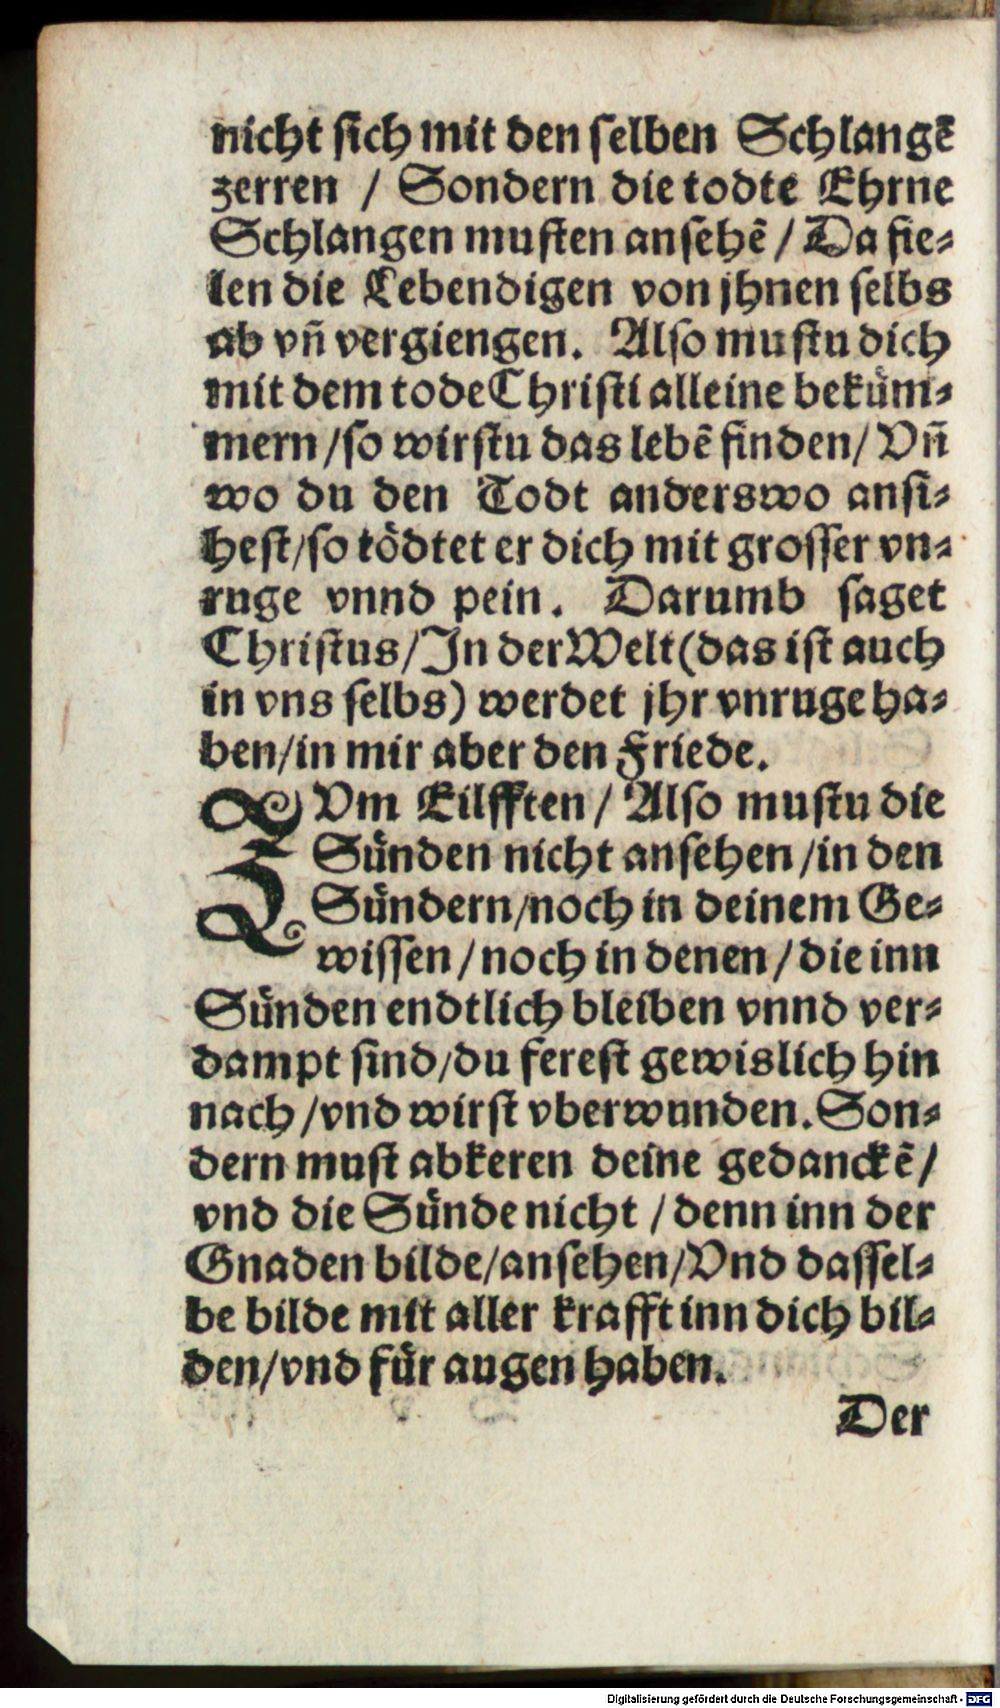 nicht ſich mit den ſelben Schlangẽ
zerren / Sondern die todte Ehrne
Schlangen muſten anſehẽ / Da fie⸗
len die Lebendigen von jhnen ſelbs
ab vñ vergiengen. Alſo muſtu dich
mit dem tode Chriſti alleine bekuͤm⸗
mern / ſo wirſtu das lebẽ finden / Vñ
wo du den Todt anderswo anſi⸗
heſt / ſo toͤdtet er dich mit groſſer vn⸗
ruge vnnd pein. Darumb ſaget
Chriſtus / In der Welt (das iſt auch
in vns ſelbs) werdet jhr vnruge ha⸗
ben / in mir aber den Friede.
ZVm Eilfften / Alſo muſtu die
Suͤnden nicht anſehen / in den
Suͤndern / noch in deinem Ge⸗
wiſſen / noch in denen / die inn
Suͤnden endtlich bleiben vnnd ver⸗
dampt ſind / du fereſt gewislich hin
nach / vnd wirſt vberwunden. Son⸗
dern muſt abkeren deine gedanckẽ /
vnd die Suͤnde nicht / denn inn der
Gnaden bilde / anſehen / Vnd daſſel⸗
be bilde mit aller krafft inn dich bil⸗
den / vnd fuͤr augen haben.
Der
Digitalisierung gefördert durch die Deutsche Forschungsgemeinschaft - DFG